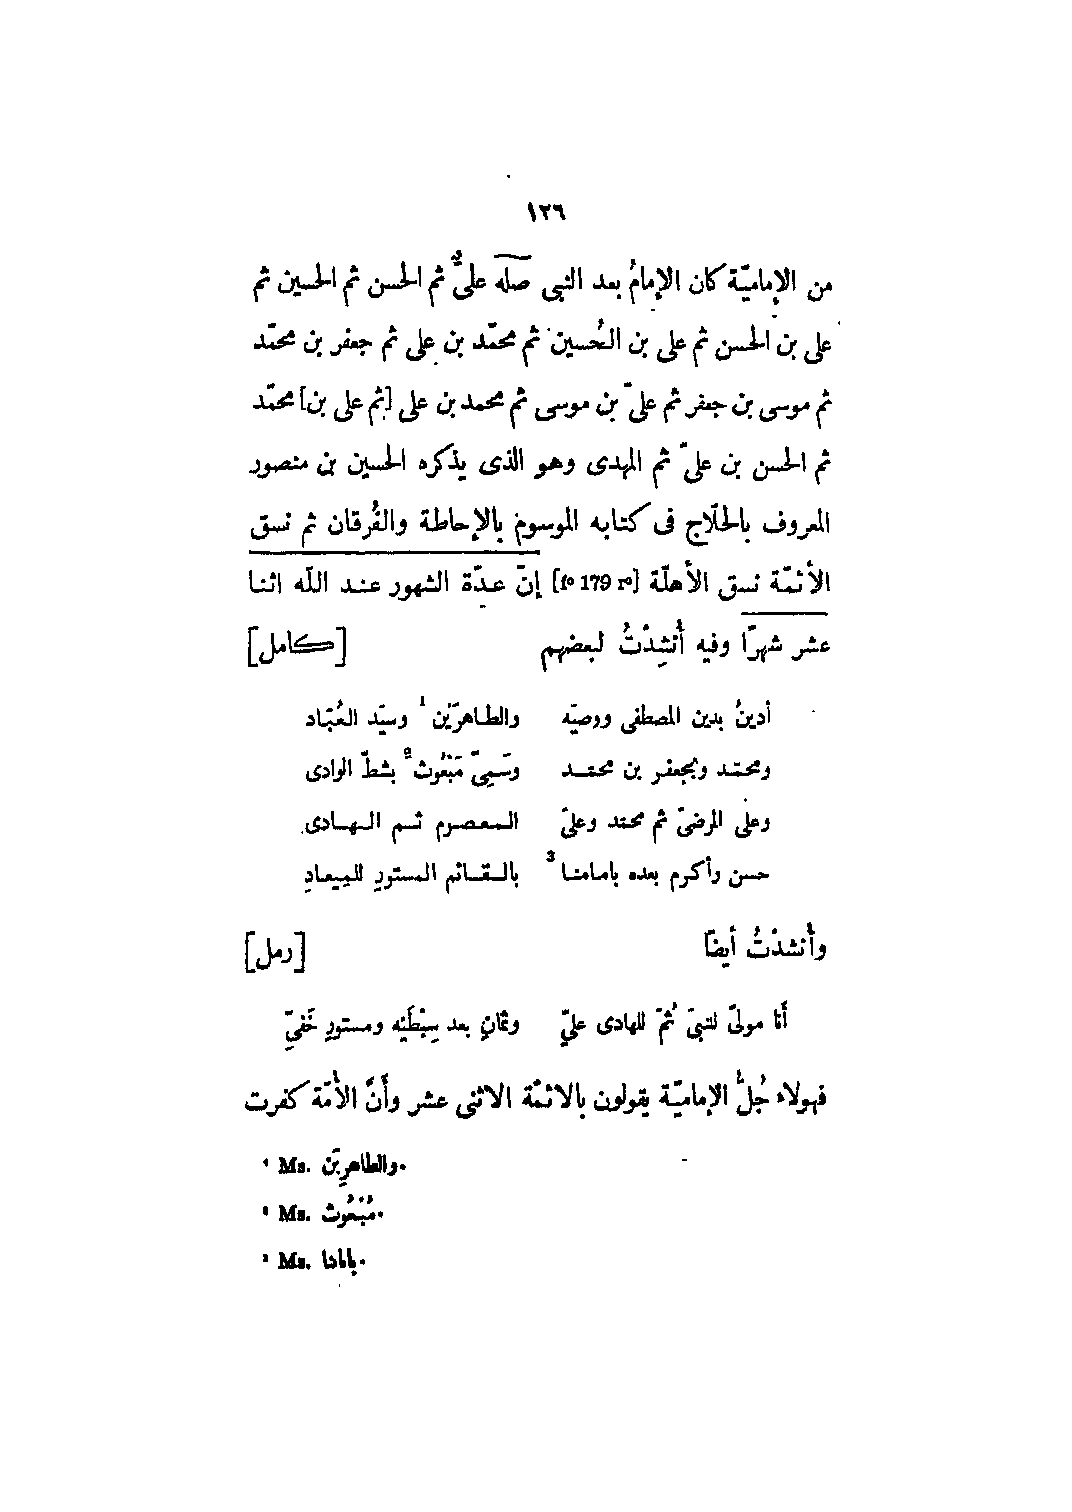 ١٢٦
من الإماميّة كان الإمامُ بعد النبى صلعم علىٌّ ثم الحسن ثم الحسين ثم
على بن الحسن ثم على بن الحُسين ثم محمّد بن على ثم جعفر بن محمّد
ثم موسى بن جعفر ثم علىّ بن موسى ثم محمد بن على [ثم على بن] محمّد
ثم الحسن بن علىّ ثم المهدى وهو الذى يذكره الحسين بن منصور
المعروف بالحلّاج فى كتابه الموسوم بالإحاطة والفُرقان ثم نسق
الأئمّة نسق الأهلّة [fº 179 rº] إنّ عدّة الشهور عند اللّه اثنا
عشر شهرًا وفيه أُنشِدْتُ لبعضهم [كامل]
أدينُ بدين المصطفى ووصيّه والطاهرَيْن ¹ وسيّد العُبّاد
ومحمّد وبجعفر بن محمّد وسَمِىّ مَبْعُوث ² بشطّ الوادى
وعلى المرضىّ ثم محمّد وعلىّ المعصوم ثم الهادى
حسن وأكرم بعده بامامنا ³ بالقائم المستورِ للمِيعادِ
وأُنشدْتُ أيضًا [رمل]
أَنا مولىً للنبىّ ثُمّ للهادى علىٍّ وثمانٍ بعد سِبْطَيْه ومستورٍ خَفىِّ
فهولاء جُلُّ الإماميّة يقولون بالائمّة الاثنى عشر وأَنَّ الأُمّة كفرت
¹ Ms. والطاهرِيّن.
² Ms. مُبْعُوث.
³ Ms.